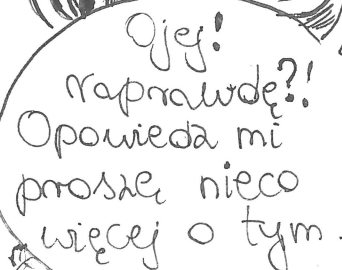 Ojej!
Naprawdę?!
Opowiedz mi
proszę nieco
więcej o tym.